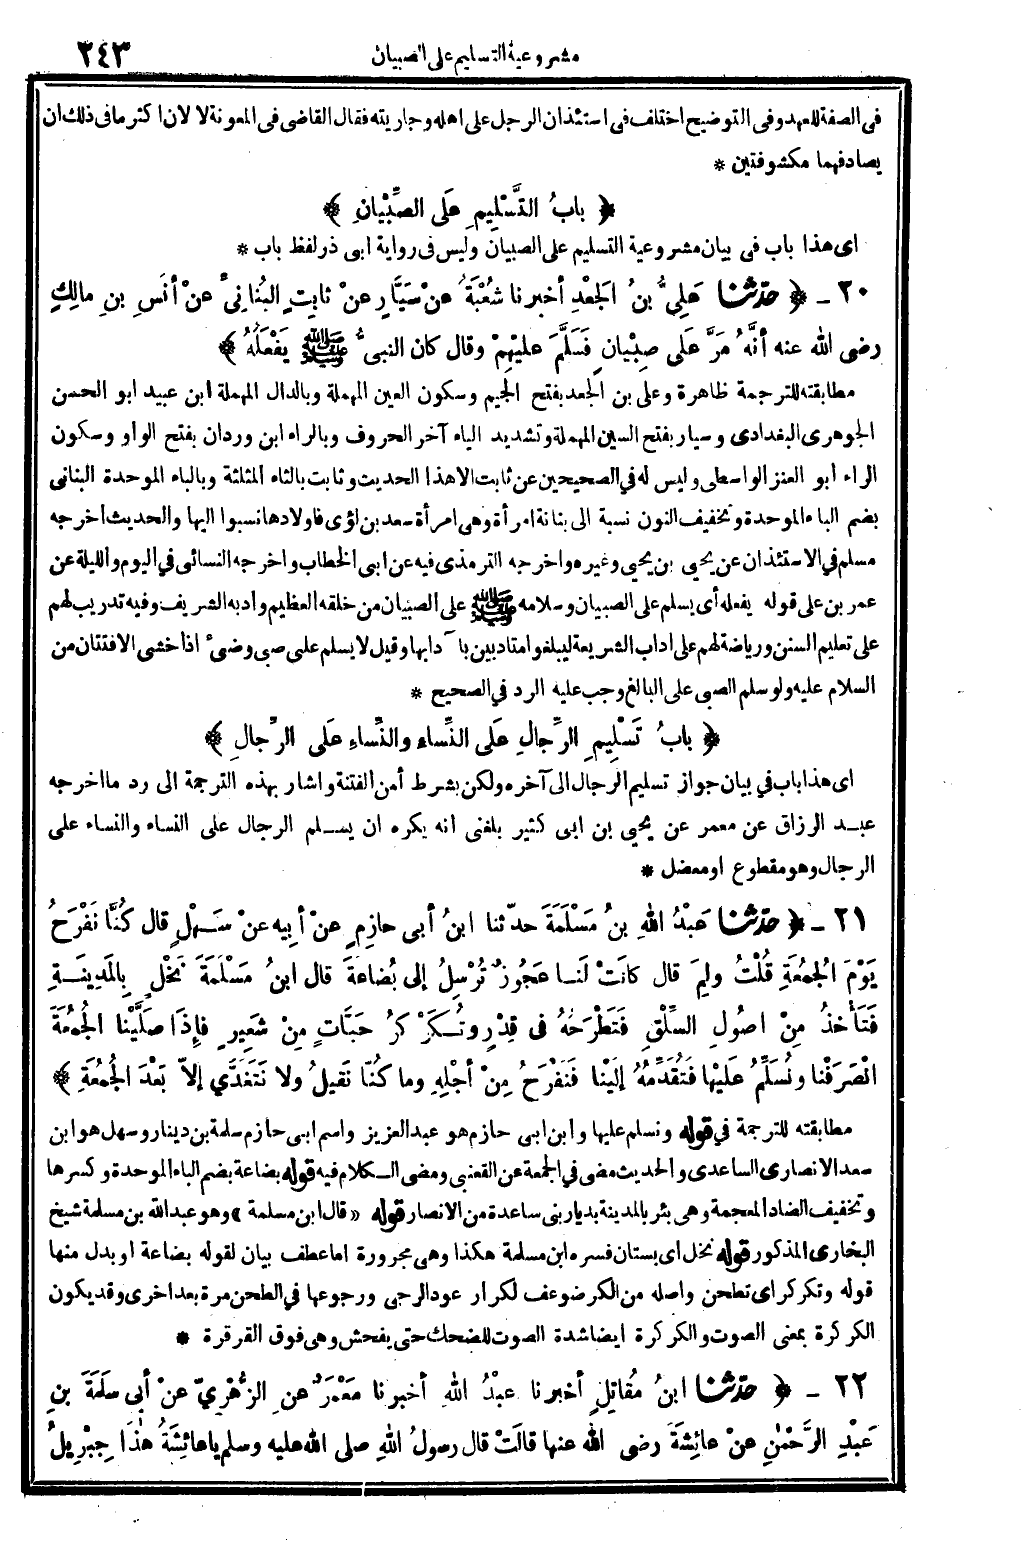 مشروعية التسليم على الصبيان
٢٤٣
فى الصفة للعهد وفى التوضيح اختلف فى استئذان الرجل على اهله وجاريته فقال القاضى فى المعونة لا لان اكثر ما فى ذلك ان
يصادفهما مكشوفتين *
﴿ بابُ التَّسْلِيمِ عَلَى الصِّبْيانِ ﴾
اى هذا باب فى بيان مشروعية التسليم على الصبيان وليس فى رواية ابى ذر لفظ باب *
٢٠ ـ ﴿ حدّثنا عَلِيُّ بنُ الجَعْدِ أخبرنا شُعْبَةُ عنْ سَيَّارٍ عنْ ثابِتٍ البُنانِيِّ عنْ أنَسِ بنِ مالِكٍ
رضى الله عنه أنَّهُ مَرَّ عَلَى صِبْيانٍ فَسَلَّمَ عليْهِمْ وقال كان النبىُّ ﷺ يَفْعَلُهُ ﴾
مطابقته للترجمة ظاهرة وعلى بن الجعد بفتح الجيم وسكون العين المهملة وبالدال المهملة ابن عبيد ابو الحسن
الجوهرى البغدادى وسيار بفتح السين المهملة وتشديد الياء آخر الحروف وبالراء ابن وردان بفتح الواو وسكون
الراء ابو العنز الواسطى وليس له فى الصحيحين عن ثابت الا هذا الحديث وثابت بالثاء المثلثة وبالباء الموحدة البنانى
بضم الباء الموحدة وتخفيف النون نسبة الى بنانة امرأة وهى امرأة سعد بن لؤى فاولادها نسبوا اليها والحديث اخرجه
مسلم فى الاستئذان عن يحيى بن يحيى وغيره واخرجه الترمذى فيه عن ابى الخطاب واخرجه النسائى فى اليوم والليلة عن
عمر بن على قوله يفعله أى يسلم على الصبيان وسلامه ﷺ على الصبيان من خلقه العظيم وادبه الشريف وفيه تدريب لهم
على تعليم السنن ورياضة لهم على اداب الشريعة ليبلغوا متادبين بآدابها وقيل لا يسلم على صبى وضىء اذا خشى الافتتان من
السلام عليه ولو سلم الصبى على البالغ وجب عليه الرد فى الصحيح *
﴿ بابُ تَسْلِيمِ الرِّجالِ عَلَى النِّساءِ والنِّساءِ عَلَى الرِّجالِ ﴾
اى هذا باب فى بيان جواز تسليم الرجال الى آخره ولكن بشرط أمن الفتنة واشار بهذه الترجمة الى رد ما اخرجه
عبد الرزاق عن معمر عن يحيى بن ابى كثير بلغنى انه يكره ان يسلم الرجال على النساء والنساء على
الرجال وهو مقطوع او معضل *
٢١ ـ ﴿ حدّثنا عَبْدُ اللهِ بنُ مَسْلَمَةَ حدّثنا ابنُ أبى حازِمٍ عنْ أبِيهِ عنْ سَهْلٍ قال كُنَّا نَفْرَحُ
يَوْمَ الجُمُعَةِ قُلْتُ ولِمَ قال كانَتْ لَنا عَجُوزٌ تُرْسِلُ إلى بُضاعَةَ قال ابنُ مَسْلَمَةَ نَخْلٍ بِالمَدِينَةِ
فَتَأْخُذُ مِنْ اصُولِ السِّلْقِ فَتَطْرَحُهُ فى قِدْرٍ وتُكَرْكِرُ حَبَّاتٍ مِنْ شَعِيرٍ فإذا صَلَّيْنا الجُمُعَةَ
انْصَرَفْنا ونُسَلِّمُ عَلَيْها فَتُقَدِّمُهُ إلَيْنا فَنَفْرَحُ مِنْ أجْلِهِ وما كُنّا نَقِيلُ ولا نَتَغَدَّي إلاّ بَعْدَ الجُمُعَةِ ﴾
مطابقته للترجمة فى قوله ونسلم عليها وابن ابى حازم هو عبد العزيز واسم ابى حازم سلمة بن دينار وسهل هو ابن
سعد الانصارى الساعدى والحديث مضى فى الجمعة عن القعنبى ومضى الكلام فيه قوله بضاعة بضم الباء الموحدة وكسرها
وتخفيف الضاد المعجمة وهى بئر بالمدينة بديار بنى ساعدة من الانصار قوله «قال ابن مسلمة» وهو عبد الله بن مسلمة شيخ
البخارى المذكور قوله نخل اى بستان فسره ابن مسلمة هكذا وهى مجرورة اما عطف بيان لقوله بضاعة او بدل منها
قوله وتكركر اى تطحن واصله من الكر ضوعف لكرار عود الرحى ورجوعها فى الطحن مرة بعد اخرى وقد يكون
الكركرة بمعنى الصوت والكركرة ايضا شدة الصوت للضحك حتى يفحش وهى فوق القرقرة *
٢٢ ـ ﴿ حدّثنا ابنُ مُقاتِلٍ أخبرنا عبْدُ اللهِ أخبرنا مَعْمَرٌ عنِ الزُّهْرِيّ عنْ أبي سلَمَةَ بنِ
عَبْدِ الرَّحْمٰنِ عنْ عائِشَةَ رضى الله عنها قالَتْ قال رسولُ اللهِ صلى الله عليه وسلم يا عائِشَةُ هٰذَا جِبْرِيلُ